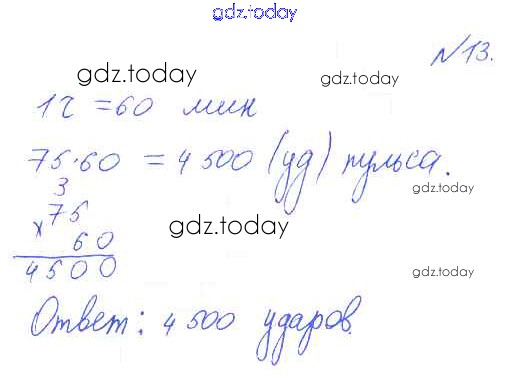 gdz.today
N13.
gdz.today
gdz.today
1 ч = 60 мин
75·60 = 4 500 (уд) пульса.
3
gdz.today
× 75
gdz.today
60
4500
gdz.today
Ответ: 4 500 ударов.